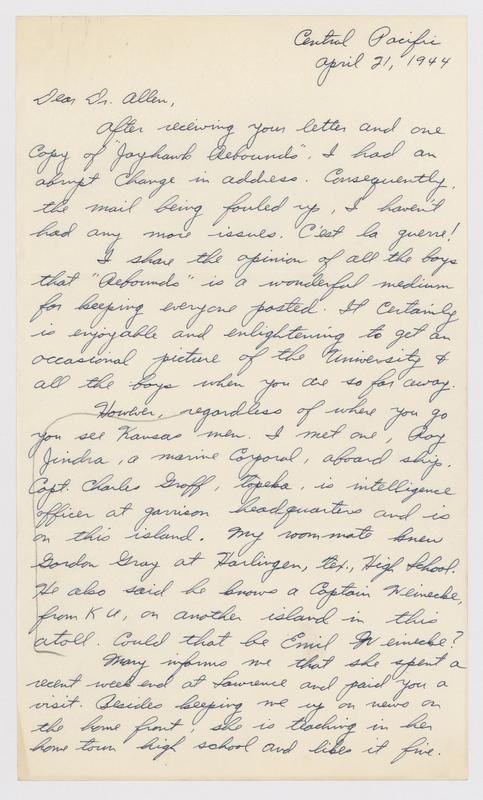 Central Pacific
April 21, 1944
Dear Dr. Allen,
After receiving your letter and one
copy of "Jayhawk Rebounds", I had an
abrupt change in address. Consequently,
the mail being fouled up, I haven't
had any more issues. C'est la guerre!
I share the opinion of all the boys
that "Rebounds" is a wonderful medium
for keeping everyone posted. It certainly
is enjoyable and enlightening to get an
occasional picture of the University &
all the boys when you are so far away.
However, regardless of where you go
you see Kansas men. I met one, Roy
Jindra, a marine Corporal, aboard ship.
Capt. Charles Groff, Topeka, is intelligence
officer at garrison headquarters and is
on this island. My roommate knew
Gordon Gray at Harlingen, Tex., High School.
He also said he knows a Captain Weinecke,
from K U, on another island in this
atoll. Could that be Emil Weinecke?
Mary informs me that she spent a
recent week end at Lawrence and paid you a
visit. Besides keeping me up on news on
the home front, she is teaching in her
home town high school and likes it fine.